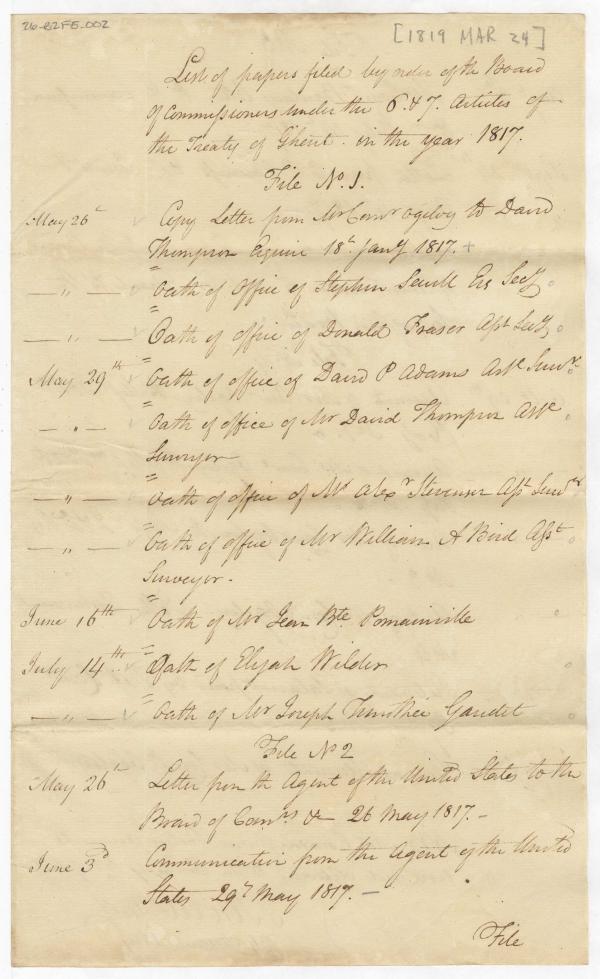 26-B2FE-002
[1819 MAR 24]
List of papers filed by order of the Board
of Commissioners under the 6. & 7. Articles of
the Treaty of Ghent. in the year 1817.
File No. 1.
May 26t Copy Letter from Mr Comr Ogilvy to David
Thompson Esquire 18t. Jany 1817. +
— " — Oath of Office of Stephen Sewell Esq Secy
— " — Oath of office of Donald Fraser Asst Secy
May 29th Oath of office of David P Adams Surv.r
— " — Oath of office of Mr David Thompson
Surveyor
— " — Oath of office of Mr Alexr Stevenson Asst Survr
— " — Oath of office of Mr William A Bird Asst
Surveyor.
June 16th Oath of Mr Jean Bte Romainville
July 14th Oath of Elijah Wilder
— " — Oath of Mr Joseph Timothée Gaudet
File No 2
May 26t Letter from the Agent of the United States to the
Board of Comrs 26 May 1817. —
June 3d Communication from the Agent of the United
States 29t May 1817. —
File